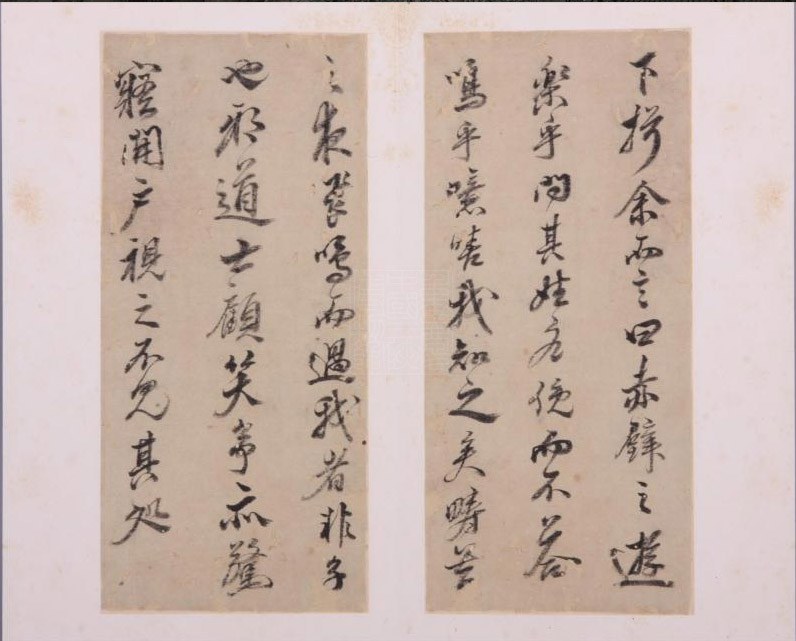 下揖余而言曰赤壁之遊
樂乎問其姓名俛而不答
嗚乎噫嘻我知之矣疇昔
之夜飛鳴而過我者非子
也耶道士顧笑予亦驚
寤開户視之不見其処